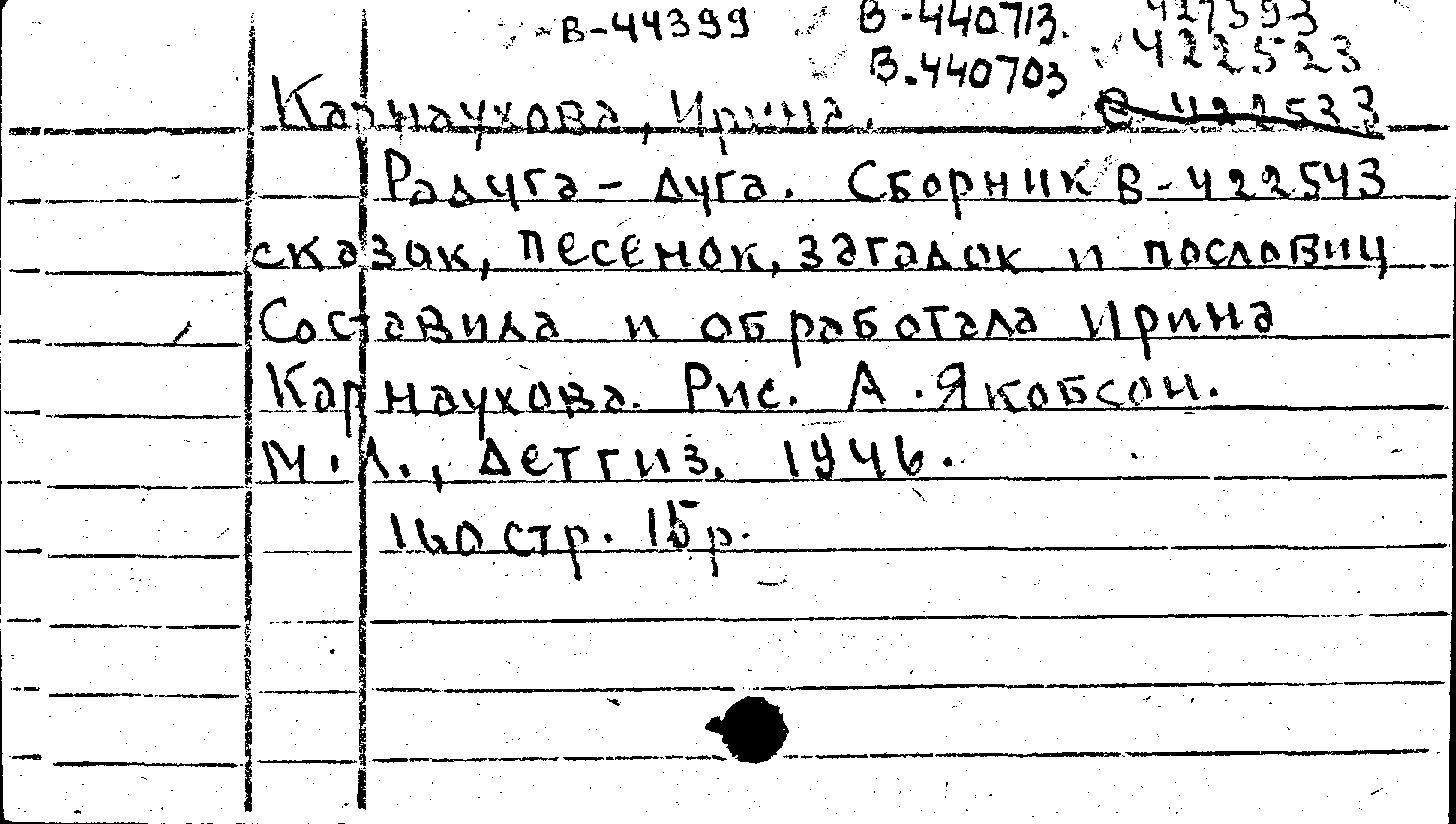 В-44399 В-440713. 427393
В-440703 422523
Карнаухова, Ирина. В-422533
Радуга-дуга. Сборник В-422543
сказок, песенок, загадок и пословиц
Составила и обработала Ирина
Карнаухова. Рис. А. Якобсон.
М.Л., Детгиз, 1946.
160 стр. 15 р.